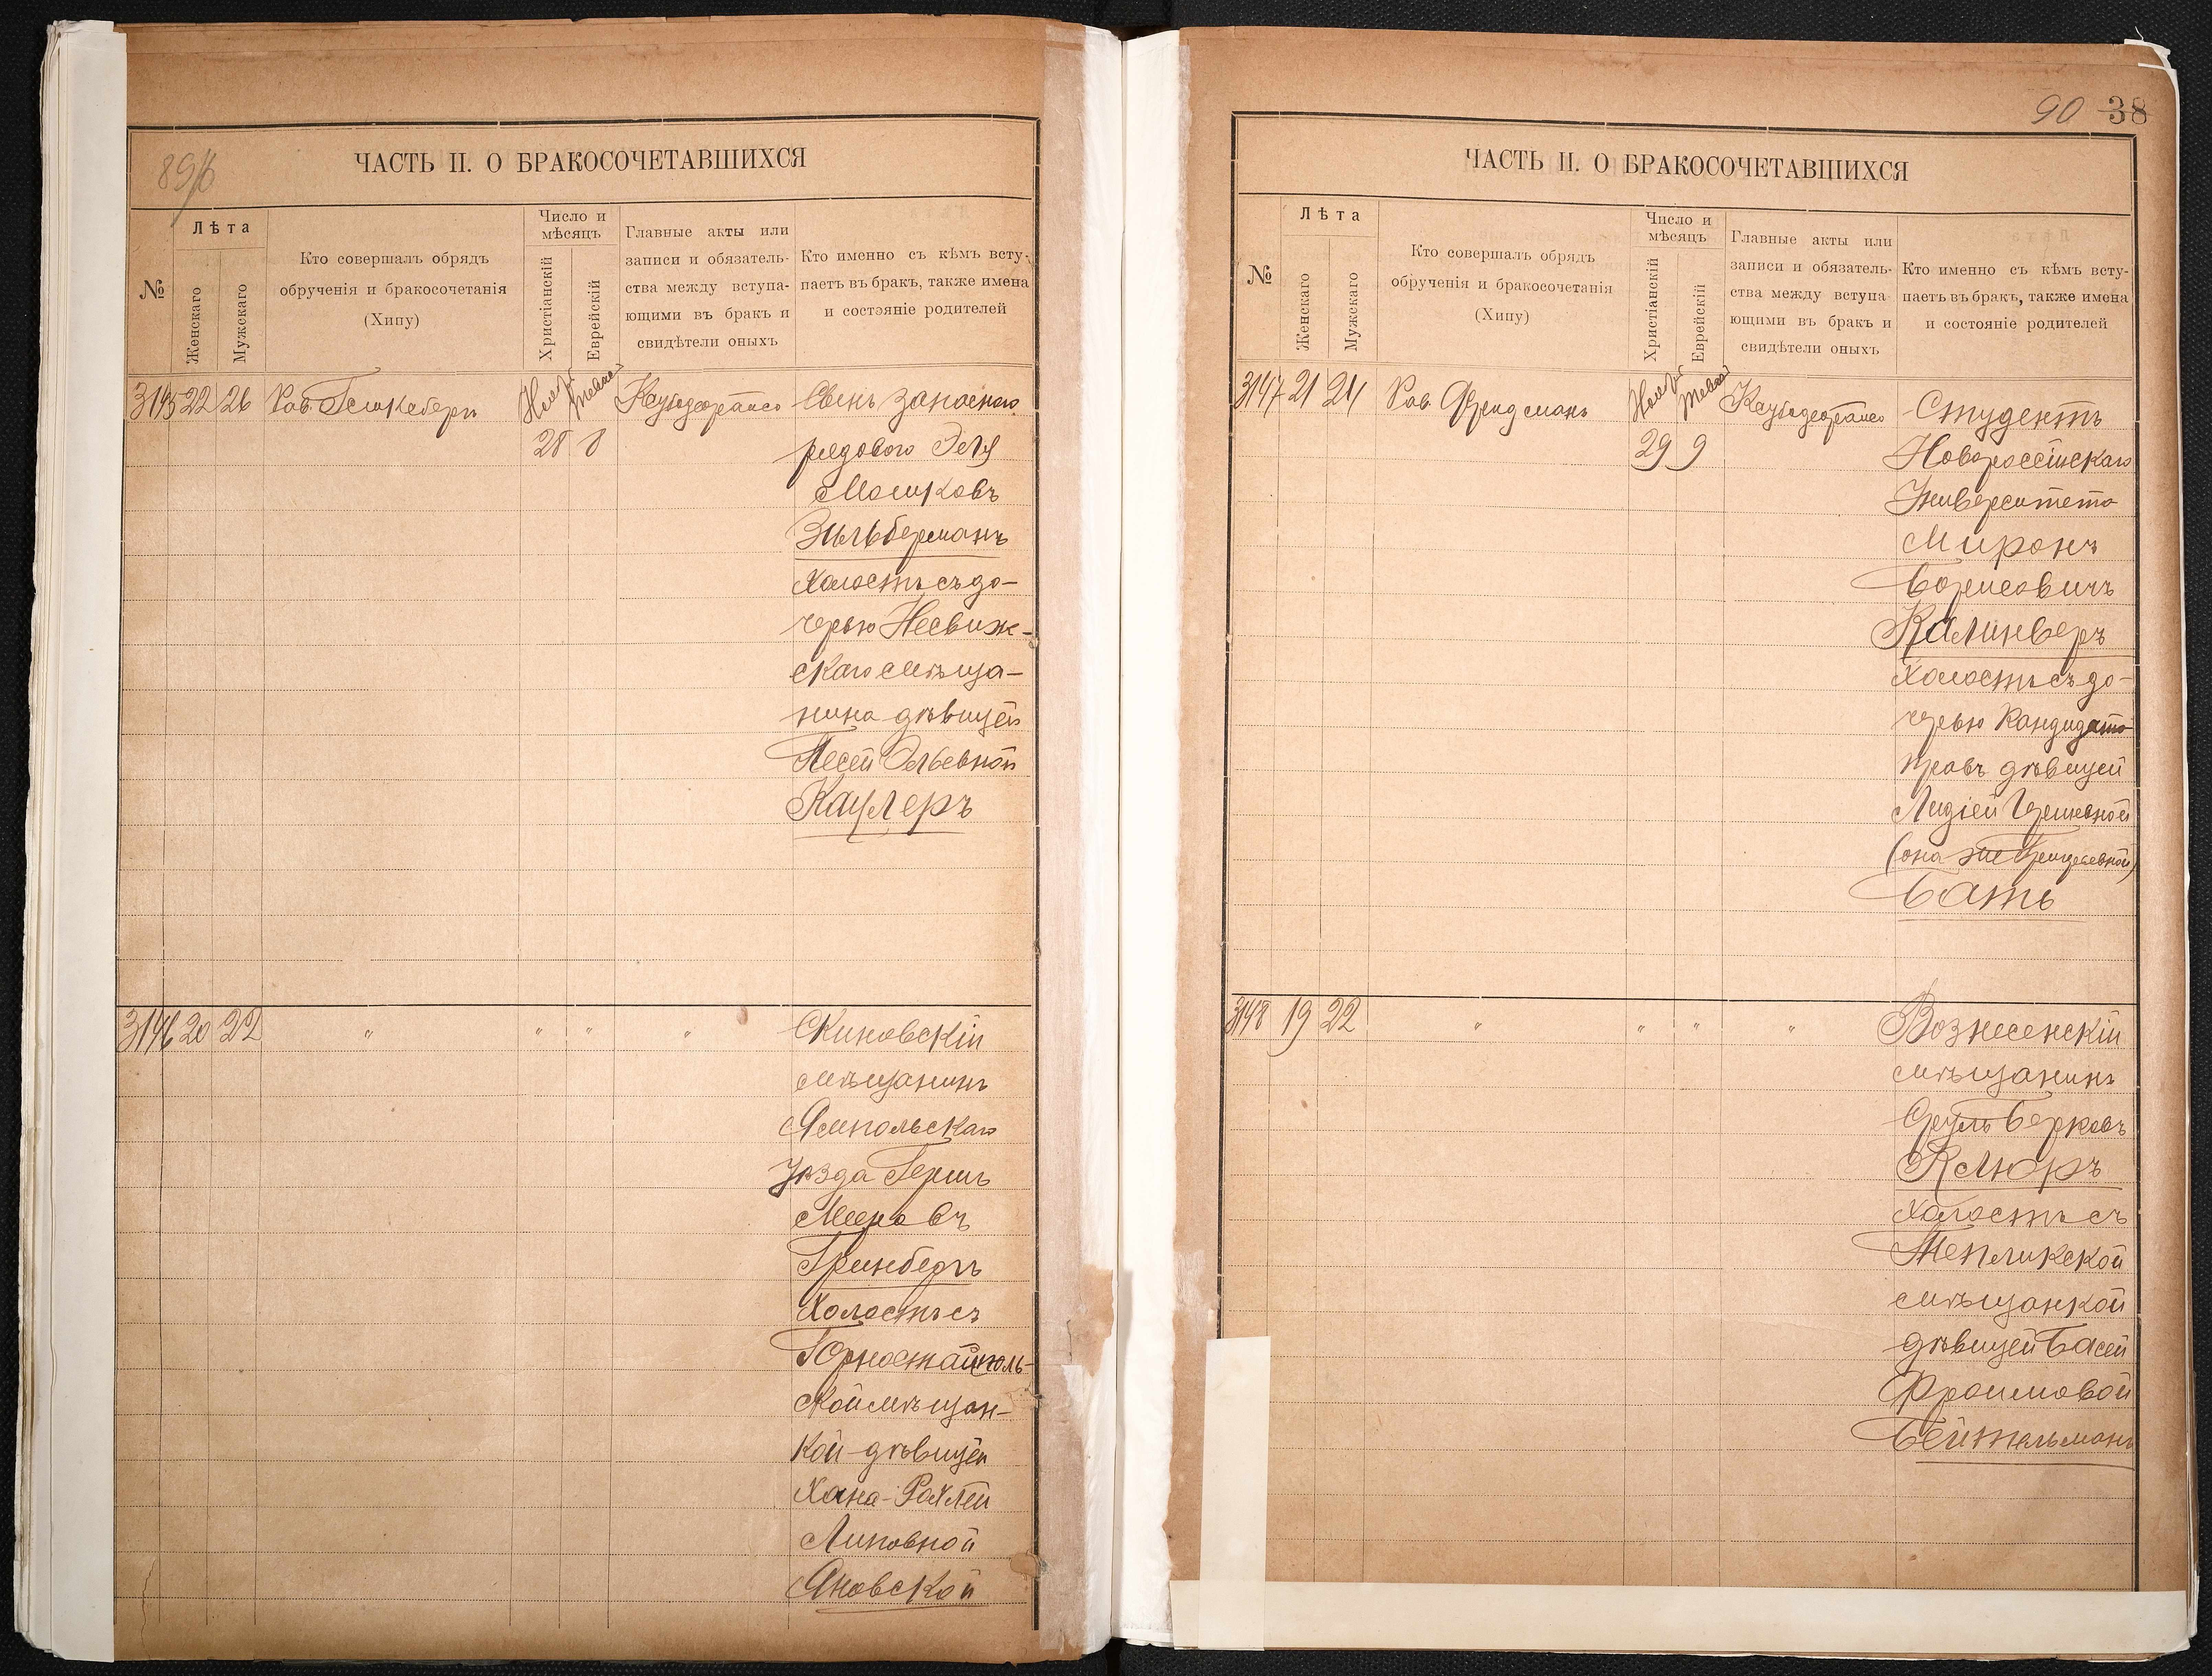 89б
ЧАСТЬ II. О БРАКОСОЧЕТАВШИХСЯ
№
Лѣта
Женскаго
Мужескаго
Кто совершалъ обрядъ
обрученія и бракосочетанія
(Хипу)
Число и
мѣсяцъ
Христіанскій
Еврейскій
Главные акты или
записи и обязатель-
ства между вступа-
ющими въ бракъ и
свидѣтели оныхъ
Кто именно съ кѣмъ всту-
паетъ въ бракъ, также имена
и состояніе родителей
3145 22 26
28 8
Сынъ запаснаго
рядового Эля
Мошковъ
Зильберманъ
Холостъ съ до-
черью Несвиж-
скаго мѣща-
нина дѣвицей
Песей Эльевной
Кацлеръ
3146 20 22 " " " "
мѣщанинъ
Ямпольскаго
Уѣзда Гершъ
Мееровъ
Гринбергъ
Холостъ съ
Горностайполь-
ской мѣщан-
кой дѣвицей
Хана-Рохлей
Липовной
Яновской
90 38
ЧАСТЬ II. О БРАКОСОЧЕТАВШИХСЯ
№
Лѣта
Женскаго
Мужескаго
Кто совершалъ обрядъ
обрученія и бракосочетанія
(Хипу)
Число и
мѣсяцъ
Христіанскій
Еврейскій
Главные акты или
записи и обязатель-
ства между вступа-
ющими въ бракъ и
свидѣтели оныхъ
Кто именно съ кѣмъ всту-
паетъ въ бракъ, также имена
и состояніе родителей
3147 21 24 Рав. Фридманъ
29 9
Студентъ
Новороссійскаго
Университета
Миронъ
Борисовичъ
Калинверъ
Холостъ съ до-
черью Кандидата
правъ дѣвицей
Лидіей
(она же
Батъ
3148 19 22 " " " "
Вознесенскій
мѣщанинъ
Сруль Берковъ
Клюръ
Холостъ съ
Тепликской
мѣщанкой
дѣвицей Басей
Фроимовой
Бейтельманъ